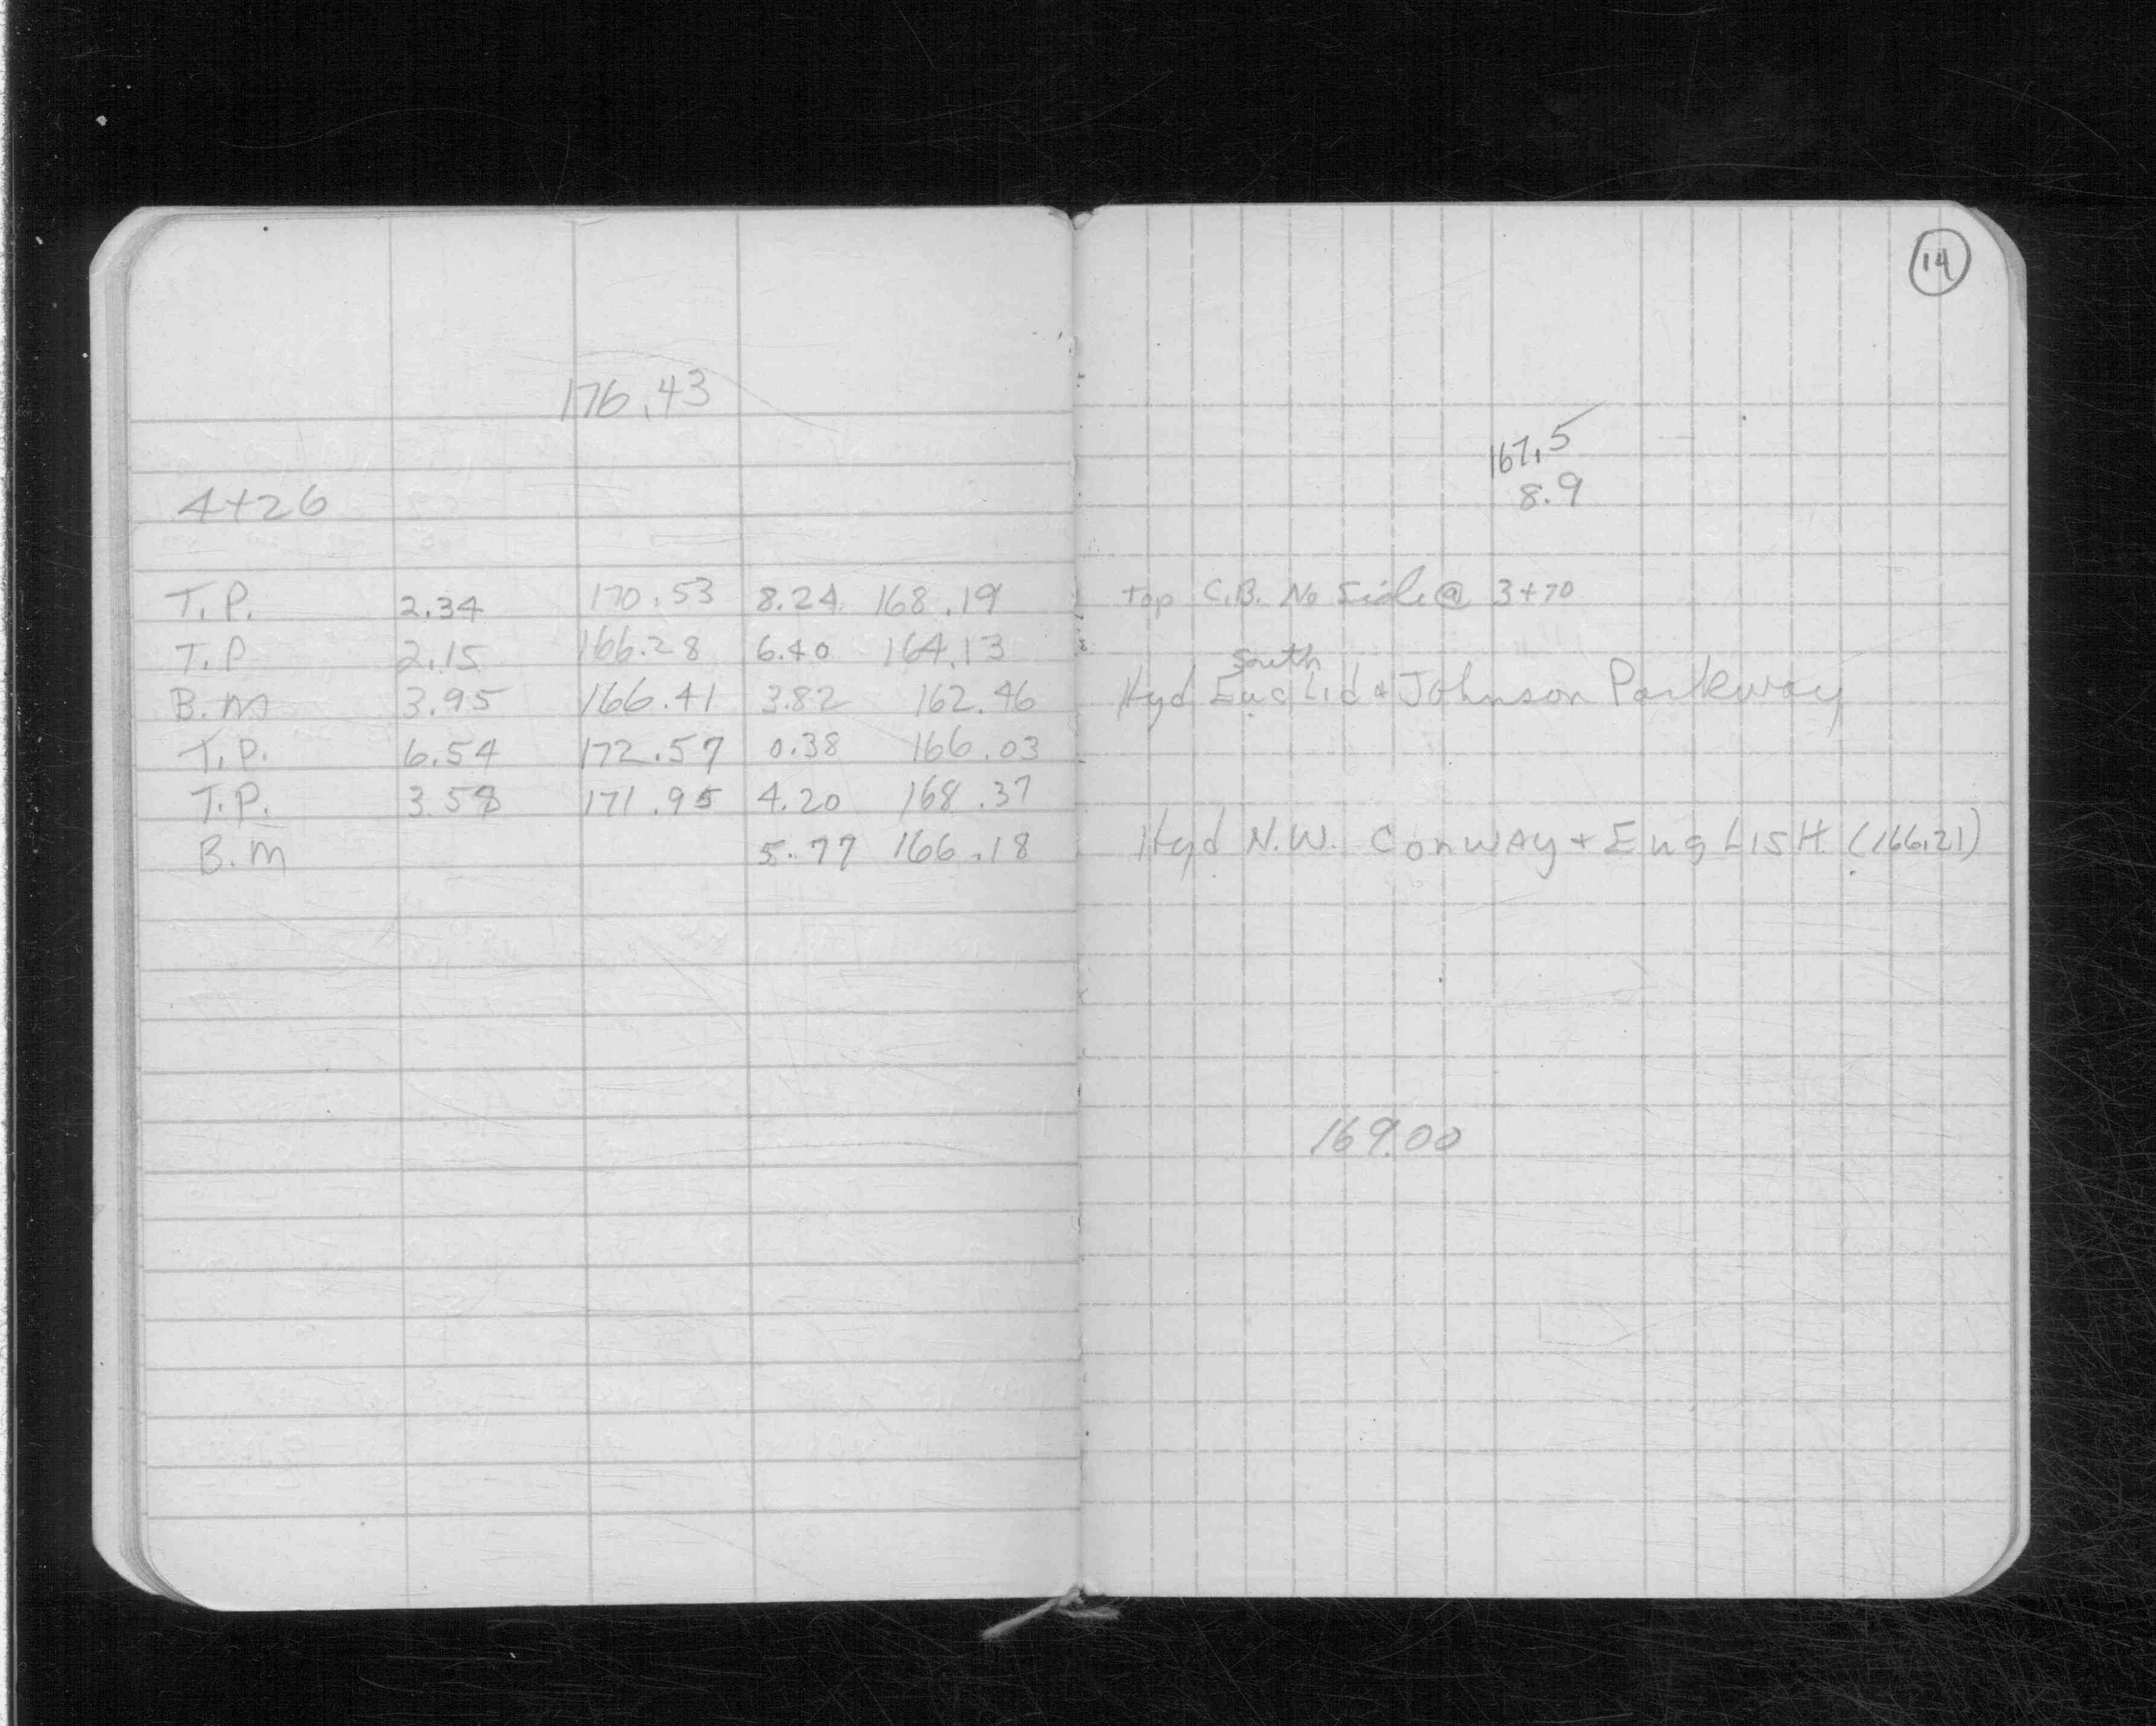 14
176.43
167.5
4+26 8.9
T.P. 2.34 170.53 8.24 168.19 top C.B. No Side @ 3+70
T.P 2.15 166.28 6.40 164.13
South
B.M 3.95 166.41 3.82 162.46 Hyd Euclid & Johnson Parkway
T.P. 6.54 172.57 0.38 166.03
T.P. 3.58 171.95 4.20 168.37
B.M 5.77 166.18 Hyd N.W. Conway + EngLISH (166.21)
169.00